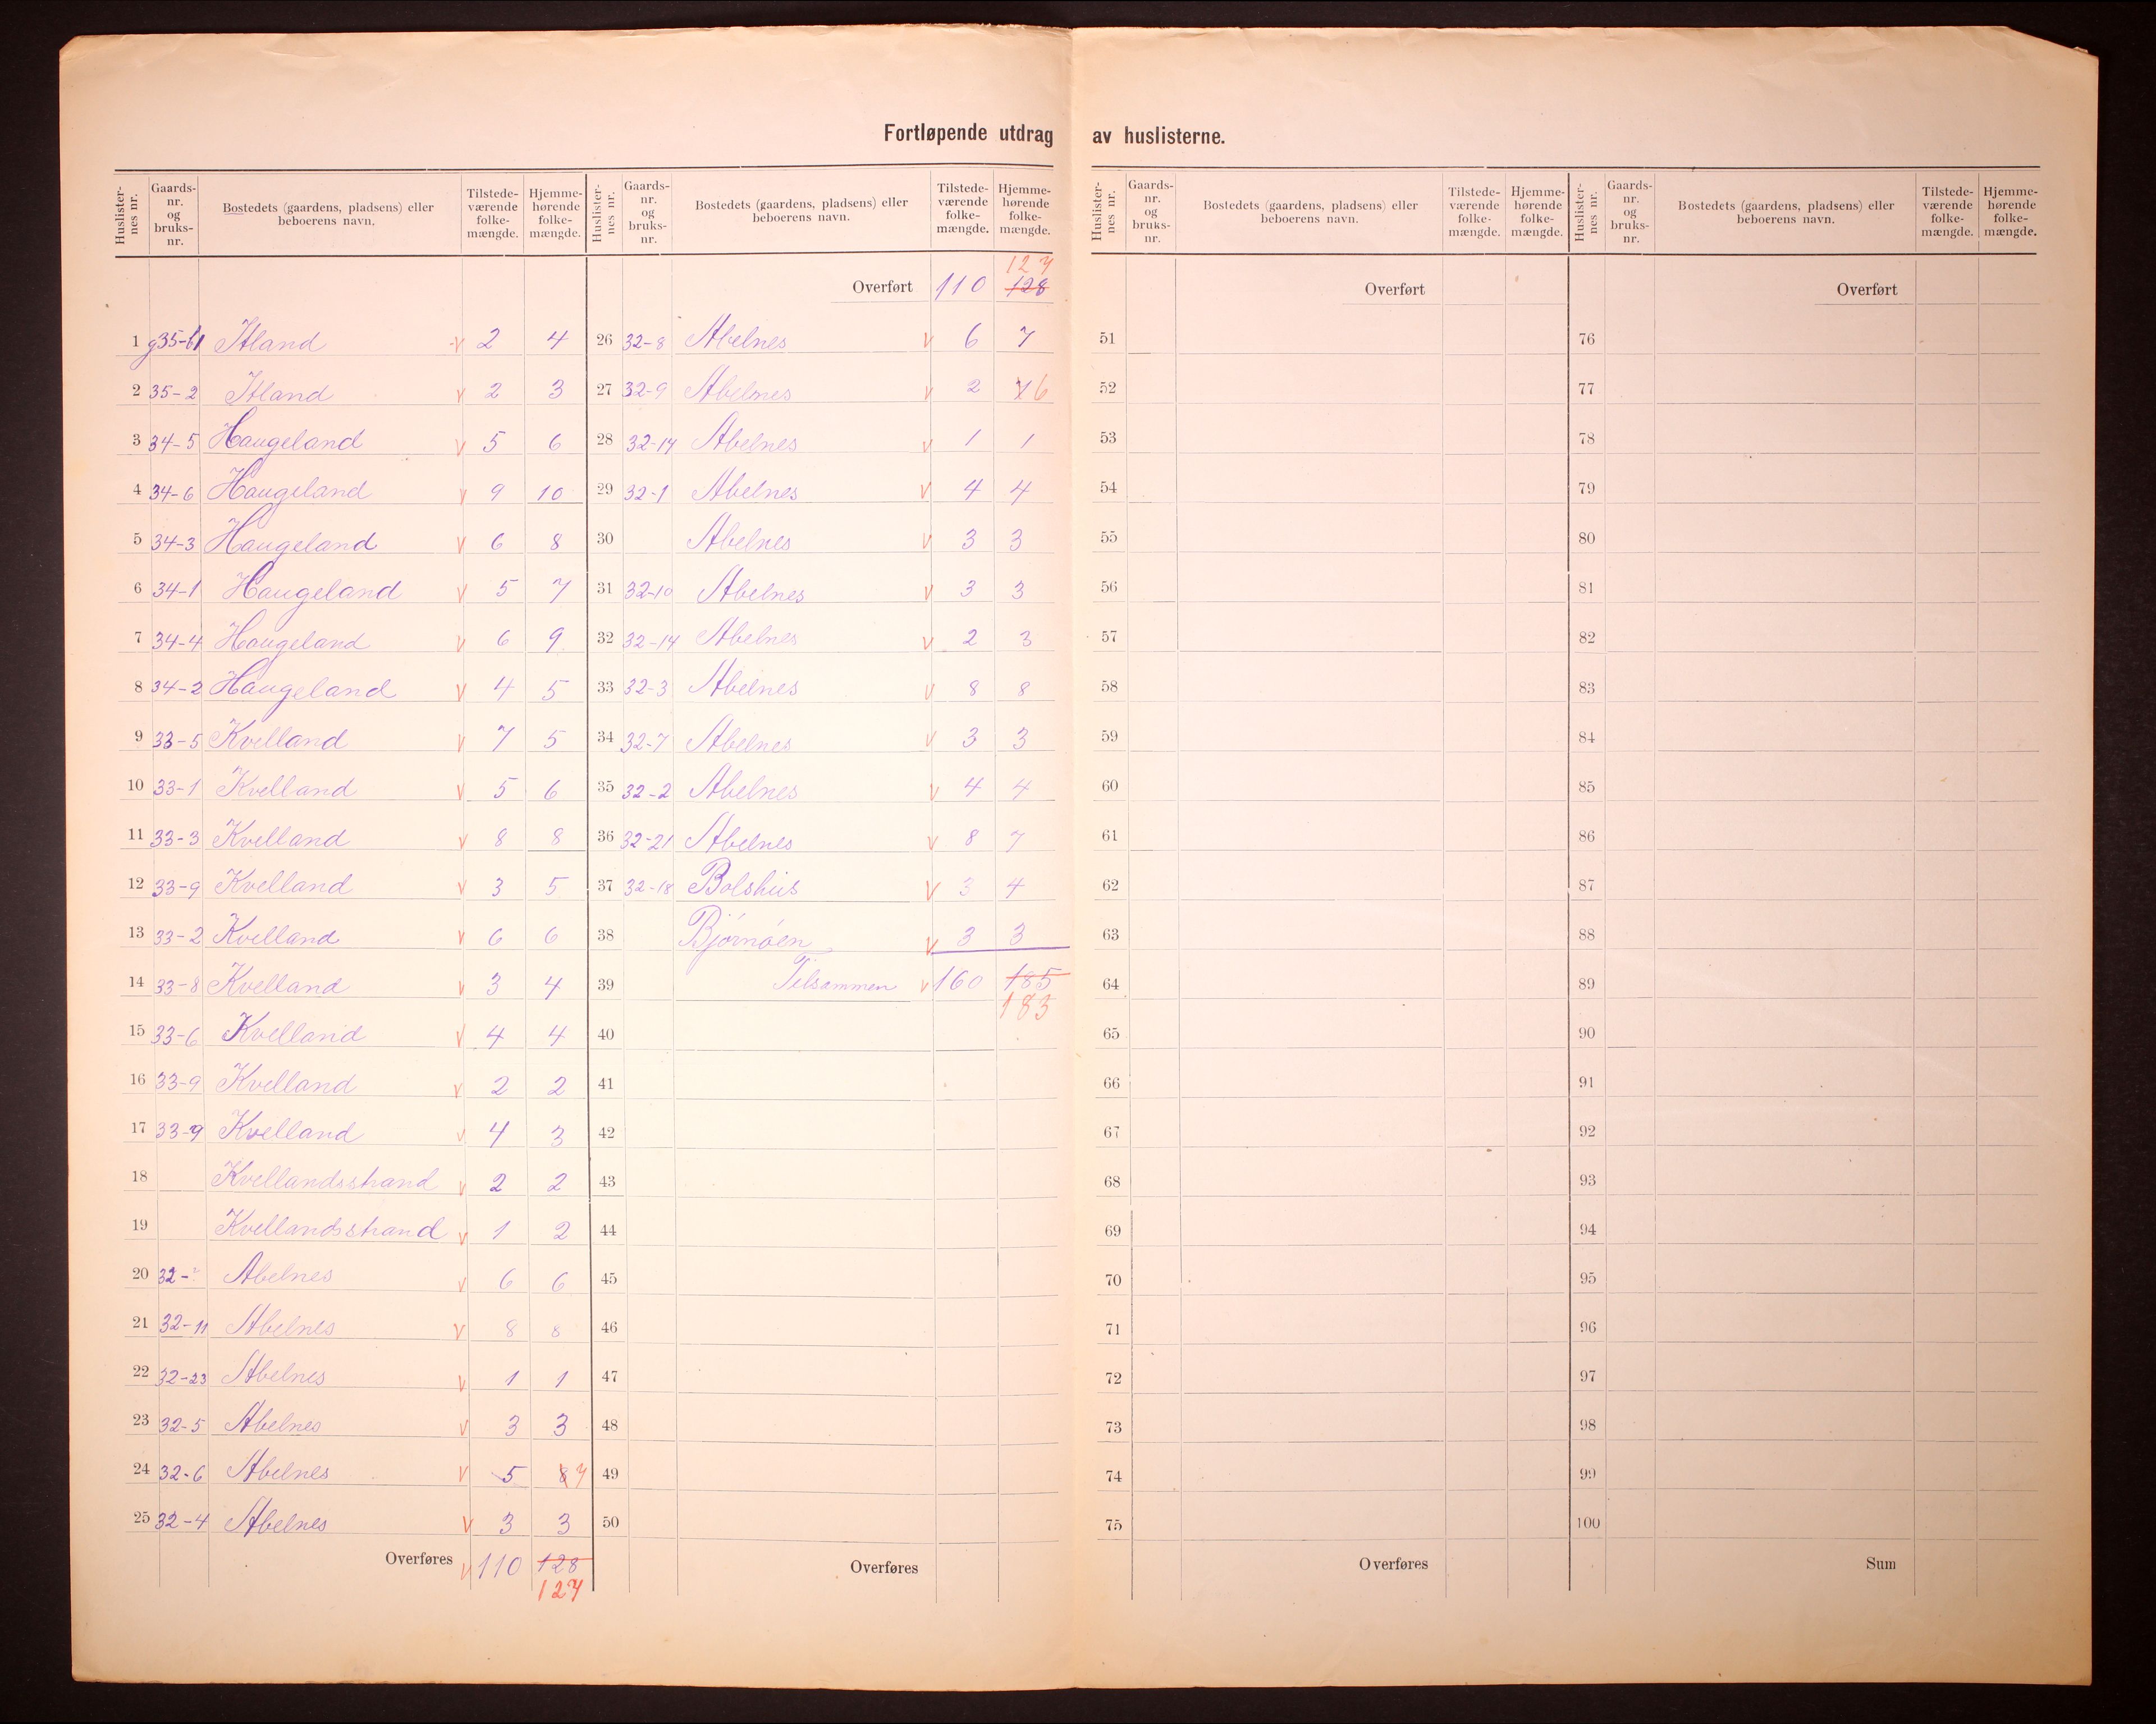 Fortløpende utdrag av huslisterne.
Huslister-nes nr. | Gaards-nr. og bruks-nr. | Bostedets (gaardens, pladsens) eller beboerens navn. | Tilstede-værende folke-mængde. | Hjemme-hørende folke-mængde.
1 g35-61 Åland v 2 4
2 35-2 Åland v 2 3
3 34-5 Haugeland v 5 6
4 34-6 Haugeland v 9 10
5 34-3 Haugeland v 6 8
6 34-1 Haugeland v 5 7
7 34-4 Haugeland v 6 9
8 34-2 Haugeland v 4 5
9 33-5 Kvelland v 7 5
10 33-1 Kvelland v 5 6
11 33-3 Kvelland v 8 8
12 33-9 Kvelland v 3 5
13 33-2 Kvelland v 6 6
14 33-8 Kvelland v 3 4
15 33-6 Kvelland v 4 4
16 33-9 Kvelland v 2 2
17 33-9 Kvelland v 4 3
18 Kvellandsstrand v 2 2
19 Kvellandsstrand v 1 2
20 32- Abelnes v 6 6
21 32-11 Abelnes v 8 8
22 32-23 Abelnes v 1 1
23 32-5 Abelnes v 3 3
24 32-6 Abelnes v 5 8 7
25 32-4 Abelnes v 3 3
Overføres v 110 128
127
Huslister-nes nr. | Gaards-nr. og bruks-nr. | Bostedets (gaardens, pladsens) eller beboerens navn. | Tilstede-værende folke-mængde. | Hjemme-hørende folke-mængde.
127
Overført 110 128
26 32-8 Abelnes v 6 7
27 32-9 Abelnes v 2 7 6
28 32-14 Abelnes v 1 1
29 32-1 Abelnes v 4 4
30 Abelnes v 3 3
31 32-10 Abelnes v 3 3
32 32-14 Abelnes v 2 3
33 32-3 Abelnes v 8 8
34 32-7 Abelnes v 3 3
35 32-2 Abelnes v 4 4
36 32-21 Abelnes v 8 7
37 32-18 Bolshus v 3 4
38 Bjørnøen v 3 3
39 Tilsammen v 160 185
183
40
41
42
43
44
45
46
47
48
49
50
Overføres
Huslister-nes nr. | Gaards-nr. og bruks-nr. | Bostedets (gaardens, pladsens) eller beboerens navn. | Tilstede-værende folke-mængde. | Hjemme-hørende folke-mængde.
Overført
51
52
53
54
55
56
57
58
59
60
61
62
63
64
65
66
67
68
69
70
71
72
73
74
75
Overføres
Huslister-nes nr. | Gaards-nr. og bruks-nr. | Bostedets (gaardens, pladsens) eller beboerens navn. | Tilstede-værende folke-mængde. | Hjemme-hørende folke-mængde.
Overført
76
77
78
79
80
81
82
83
84
85
86
87
88
89
90
91
92
93
94
95
96
97
98
99
100
Sum